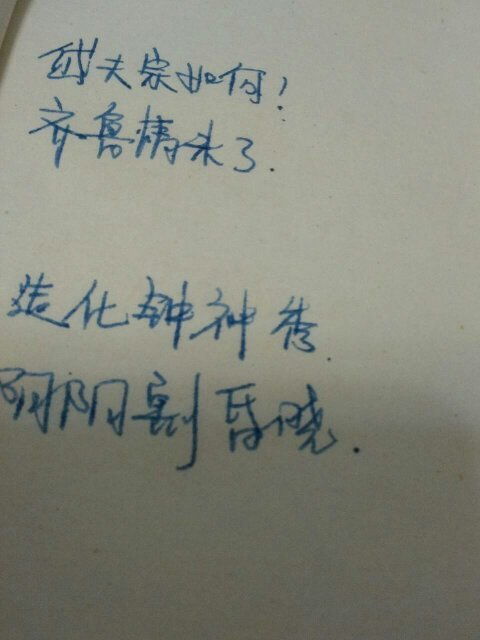 岱夫宗如何!
齐鲁情未了.
造化钟神秀.
阴阳割昏晓.